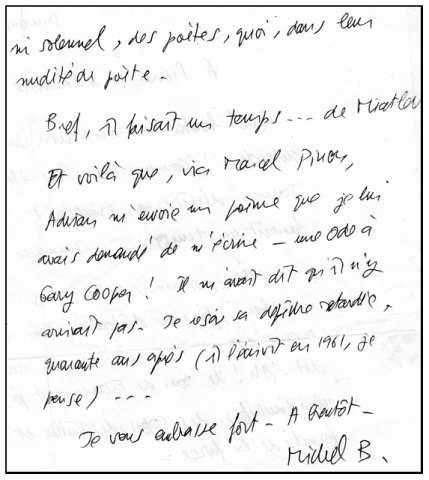 ni solennel, des poètes, quoi, dans leur
nudité de poète.
Bref, il faisait un temps... de Miatlev
Et voilà que, via Marcel Pinon,
Adrian m'envoie un poème que je lui
avais demandé de m'écrire – une Ode à
Gary Cooper ! Il m'avait dit qu'il n'y
arrivait pas. Je reçois sa retardée,
quarante ans après (il l'écrivit en 1961, je
pense) ...
Je vous embrasse fort – A bientôt –
Michel B.